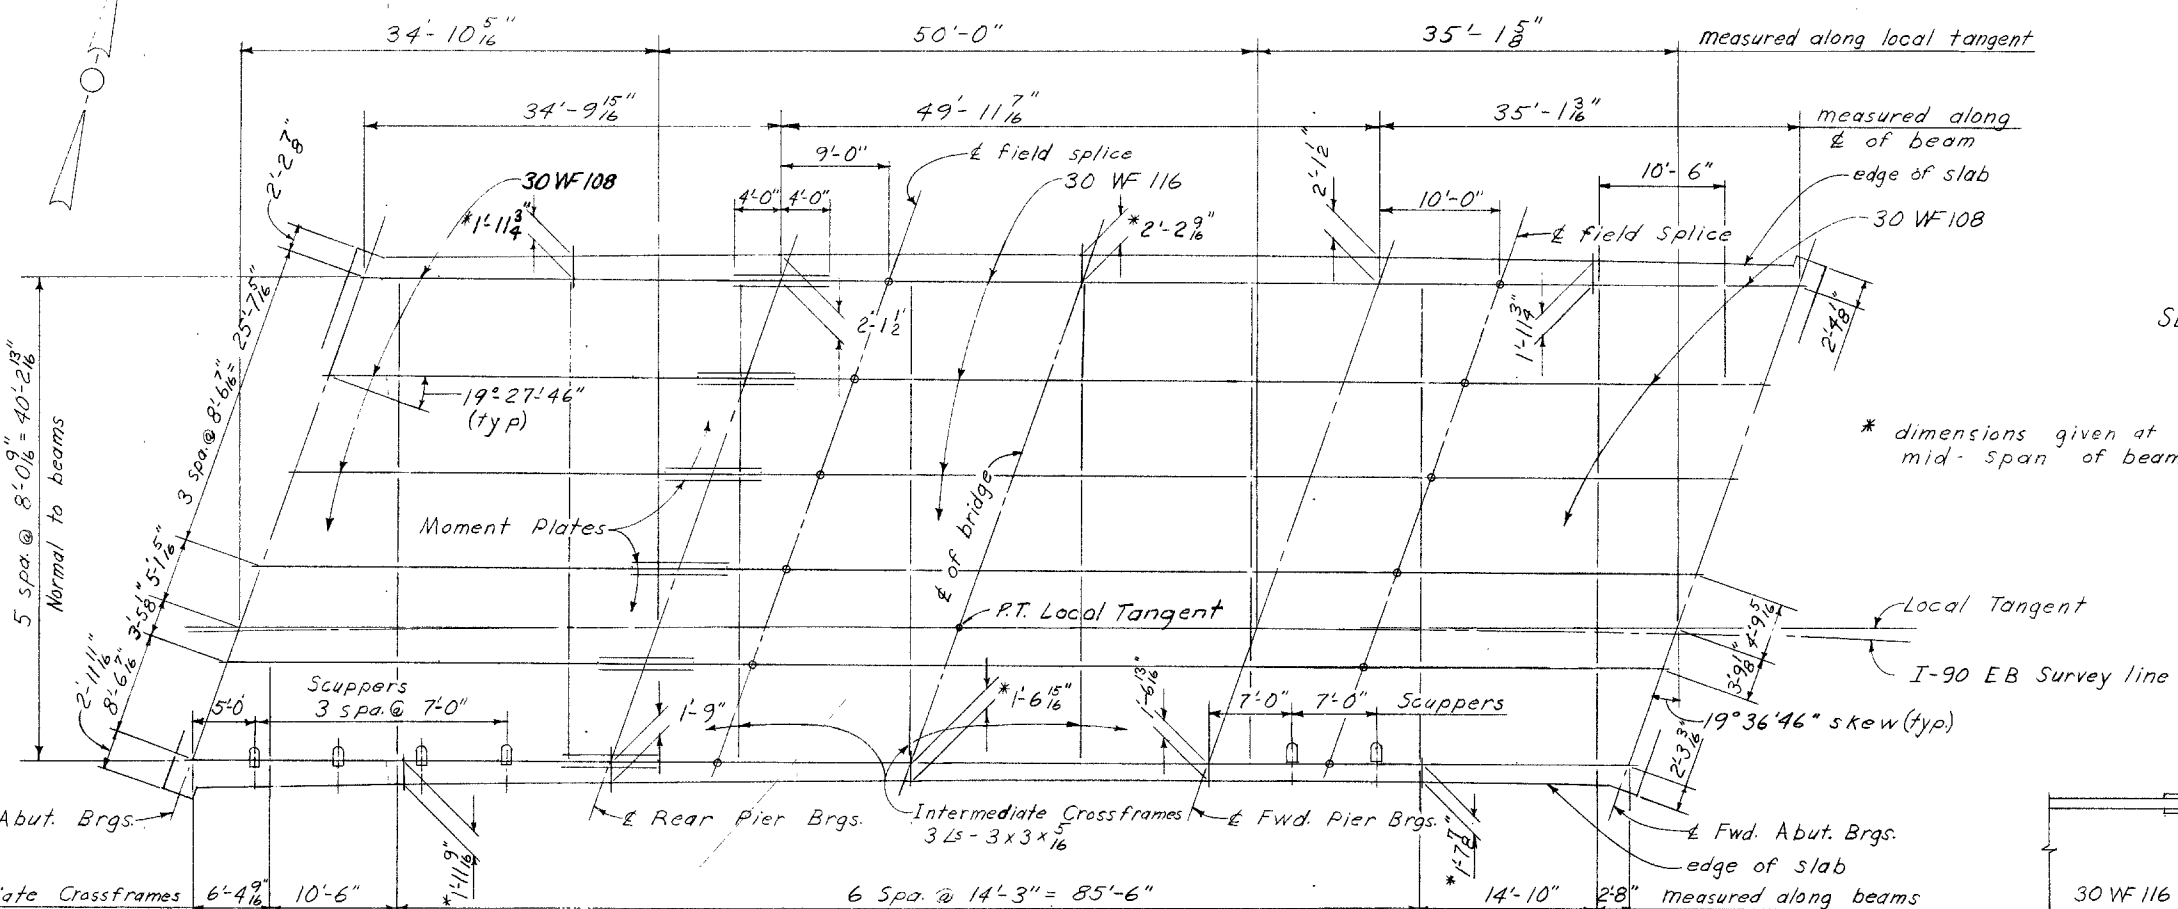 34'-10 5/16"
50'-0"
35'-1 5/8"
measured along local tangent
34'-9 15/16"
49'-11 7/16"
35'-1 3/16"
measured along
℄ of beam
2'-2 7/8"
9'-0"
℄ field splice
2'-1 1/2"
10'-6"
edge of slab
30 WF 108
30 WF 116
4'-0"
4'-0"
10'-0"
30 WF 108
*1'-11 3/4"
*2'-2 9/16"
℄ field splice
3 spa. @ 8'-6 7/16" = 25'-7 5/16"
2'-1 1/2"
1'-11 3/4"
2'-4 1/8"
5 spa. @ 8'-0 9/16" = 40'-2 13/16"
Normal to beams
19°27'46"
(typ)
* dimensions given at
mid-span of beam
Moment Plates
℄ of bridge
5'-1 5/16"
3'-5 1/8"
P.T. Local Tangent
4'-9 5/16"
Local Tangent
8'-6 7/16"
2'-11 11/16"
3'-9 1/8"
I-90 EB Survey line
5'-0
Scuppers
3 spa. @ 7'-0"
1'-9"
*1'-6 15/16"
1'-6 13/16"
7'-0"
7'-0"
Scuppers
19°36'46" skew (typ.)
2'-3 3/16"
Abut. Brgs.
℄ Rear Pier Brgs.
Intermediate Crossframes
3 Ls - 3 x 3 x 5/16
℄ Fwd. Pier Brgs.
℄ Fwd. Abut. Brgs.
*1'-11 9/16"
*1'-7 7/8"
edge of slab
iate Crossframes
6'-4 9/16"
10'-6"
6 Spa. @ 14'-3" = 85'-6"
14'-10"
2'-8"
measured along beams
30 WF 116